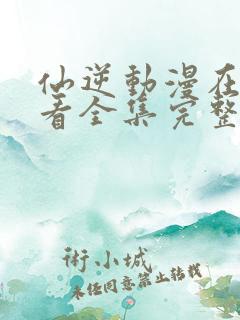 仙逆動漫在
看全集完整
術小城
未经同意禁止转载